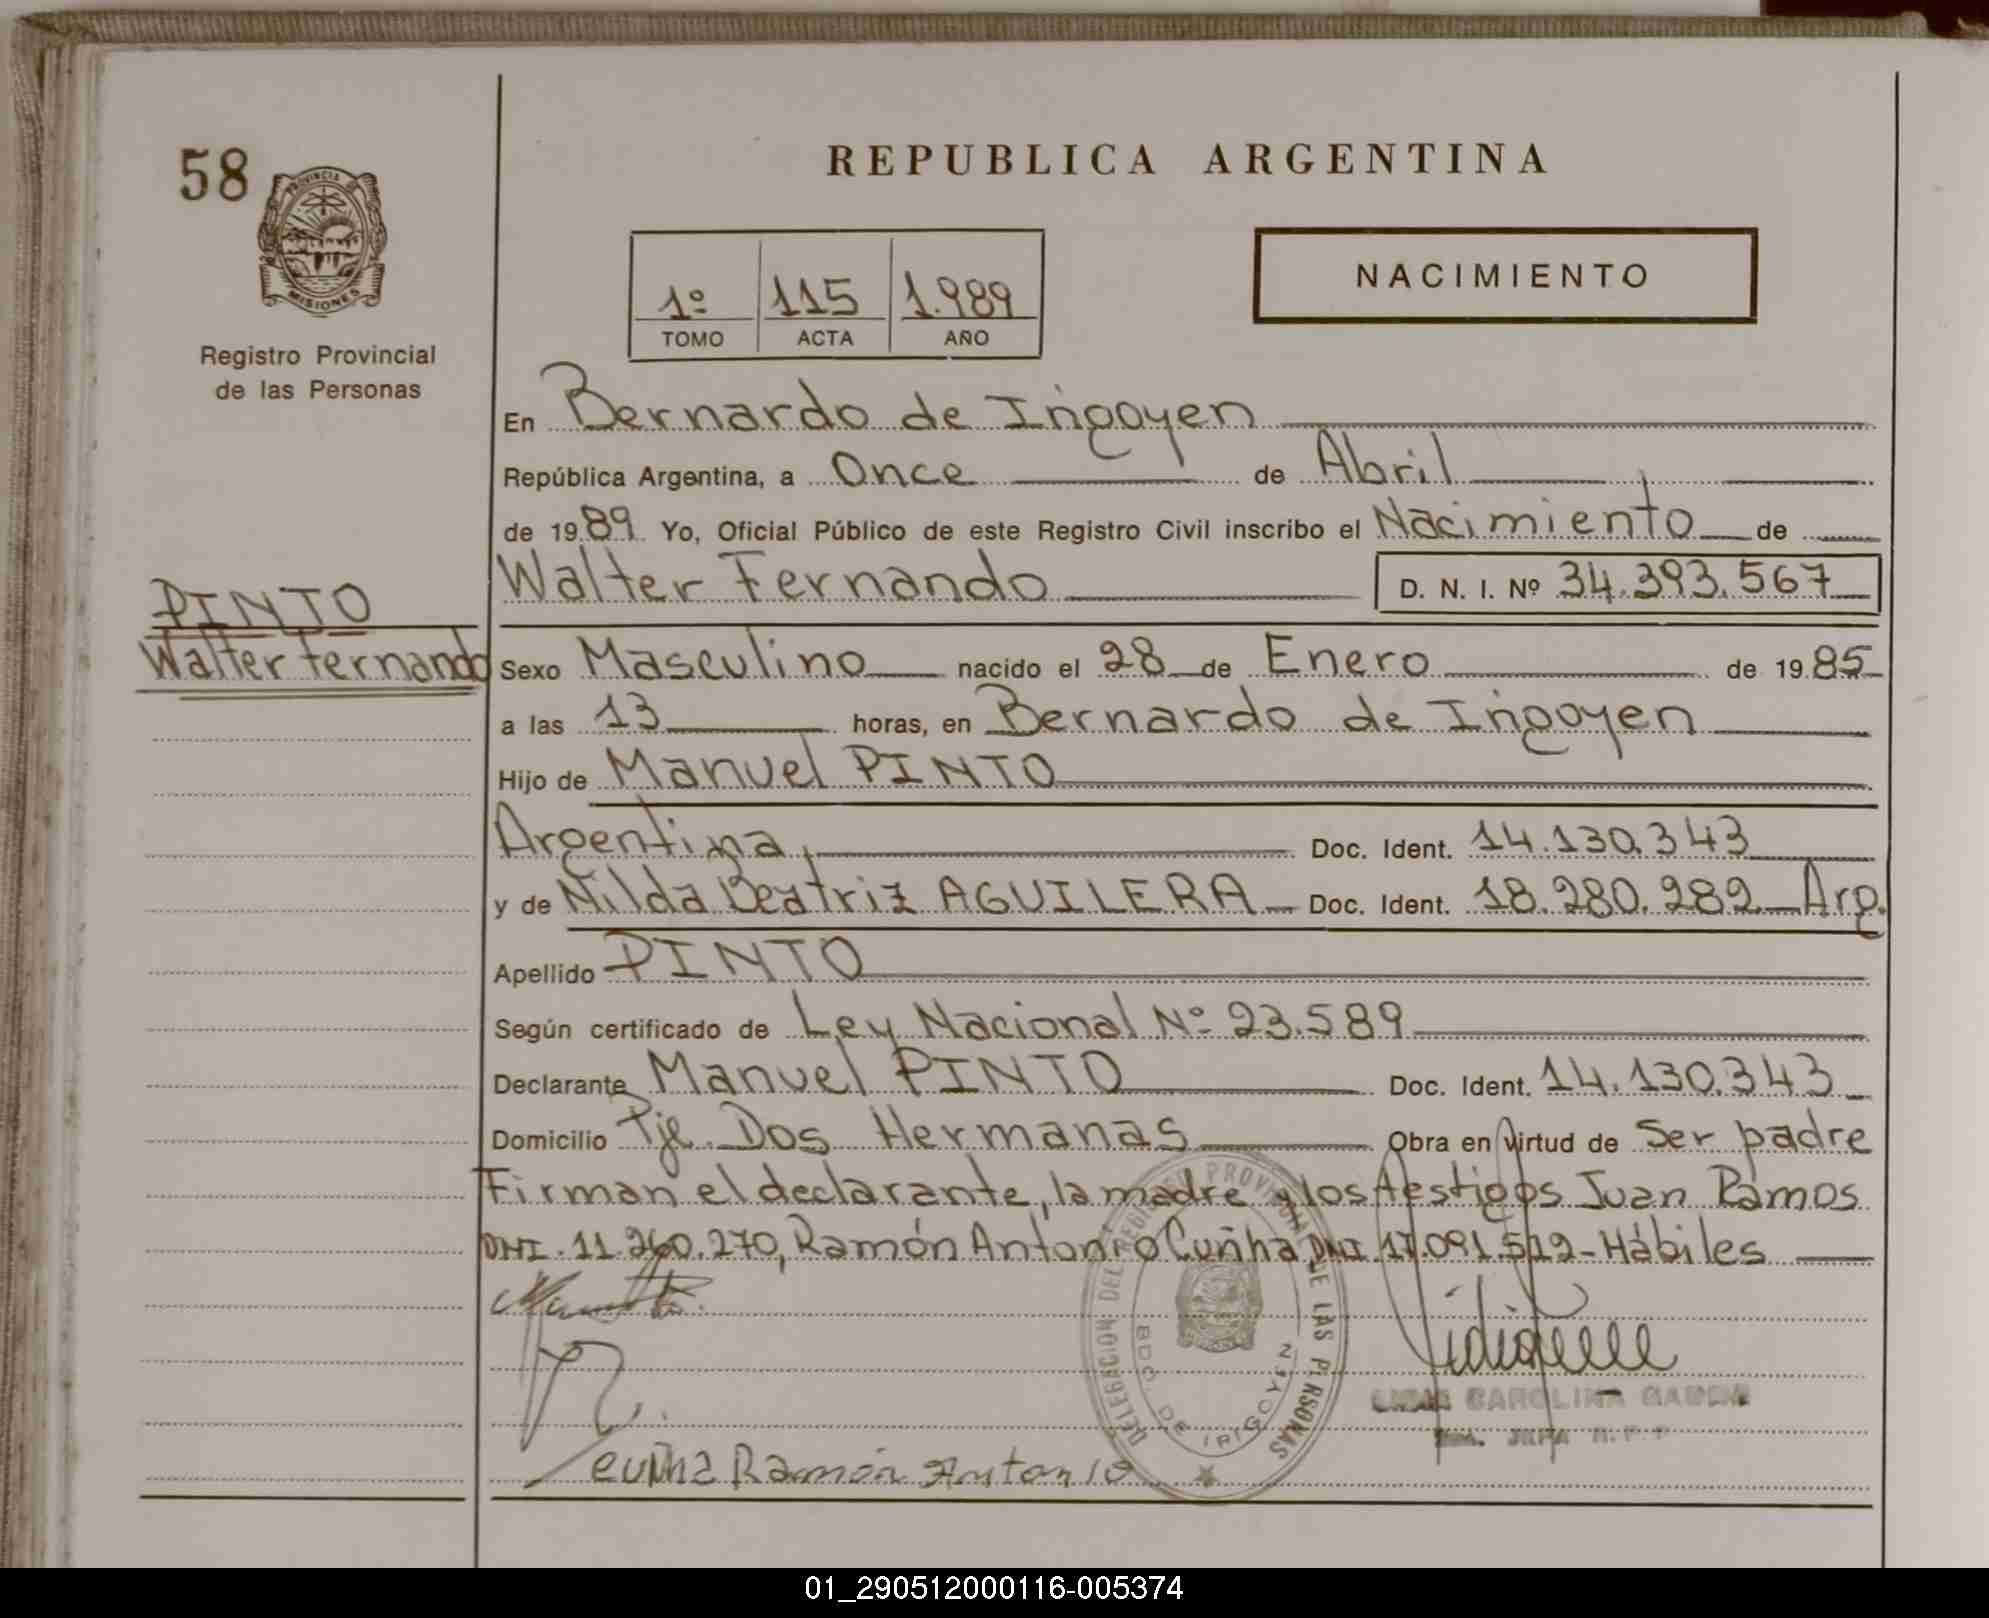 58
PROVINCIA DE
MISIONES
Registro Provincial
de las Personas
REPUBLICA ARGENTINA
1º 115 1.989
TOMO ACTA AÑO
NACIMIENTO
En Bernardo de Irigoyen
República Argentina, a Once de Abril
de 1989 Yo, Oficial Público de este Registro Civil inscribo el Nacimiento de
Walter Fernando D. N. I. Nº 34.393.567
PINTO
Walter Fernando
Sexo Masculino nacido el 28 de Enero de 1985
a las 13 horas, en Bernardo de Irigoyen
Hijo de Manuel PINTO
Argentina, Doc. Ident. 14.130.343
y de Nilda Beatriz AGUILERA Doc. Ident. 18.280.282 Arg.
Apellido PINTO
Según certificado de Ley Nacional Nº 23.589
Declarante Manuel PINTO Doc. Ident. 14.130.343
Domicilio Pje. Dos Hermanas Obra en virtud de Ser padre
Firman el declarante, la madre y los testigos Juan Ramos
DNI. 11.260.270, Ramón Antonio Cuñha DNI 17.091.512 - Hábiles
DELEGACION DEL REGISTRO PROVINCIAL DE LAS PERSONAS
BDO. DE IRIGOYEN
CAROLINA
Cuñha Ramón Antonio
01_290512000116-005374